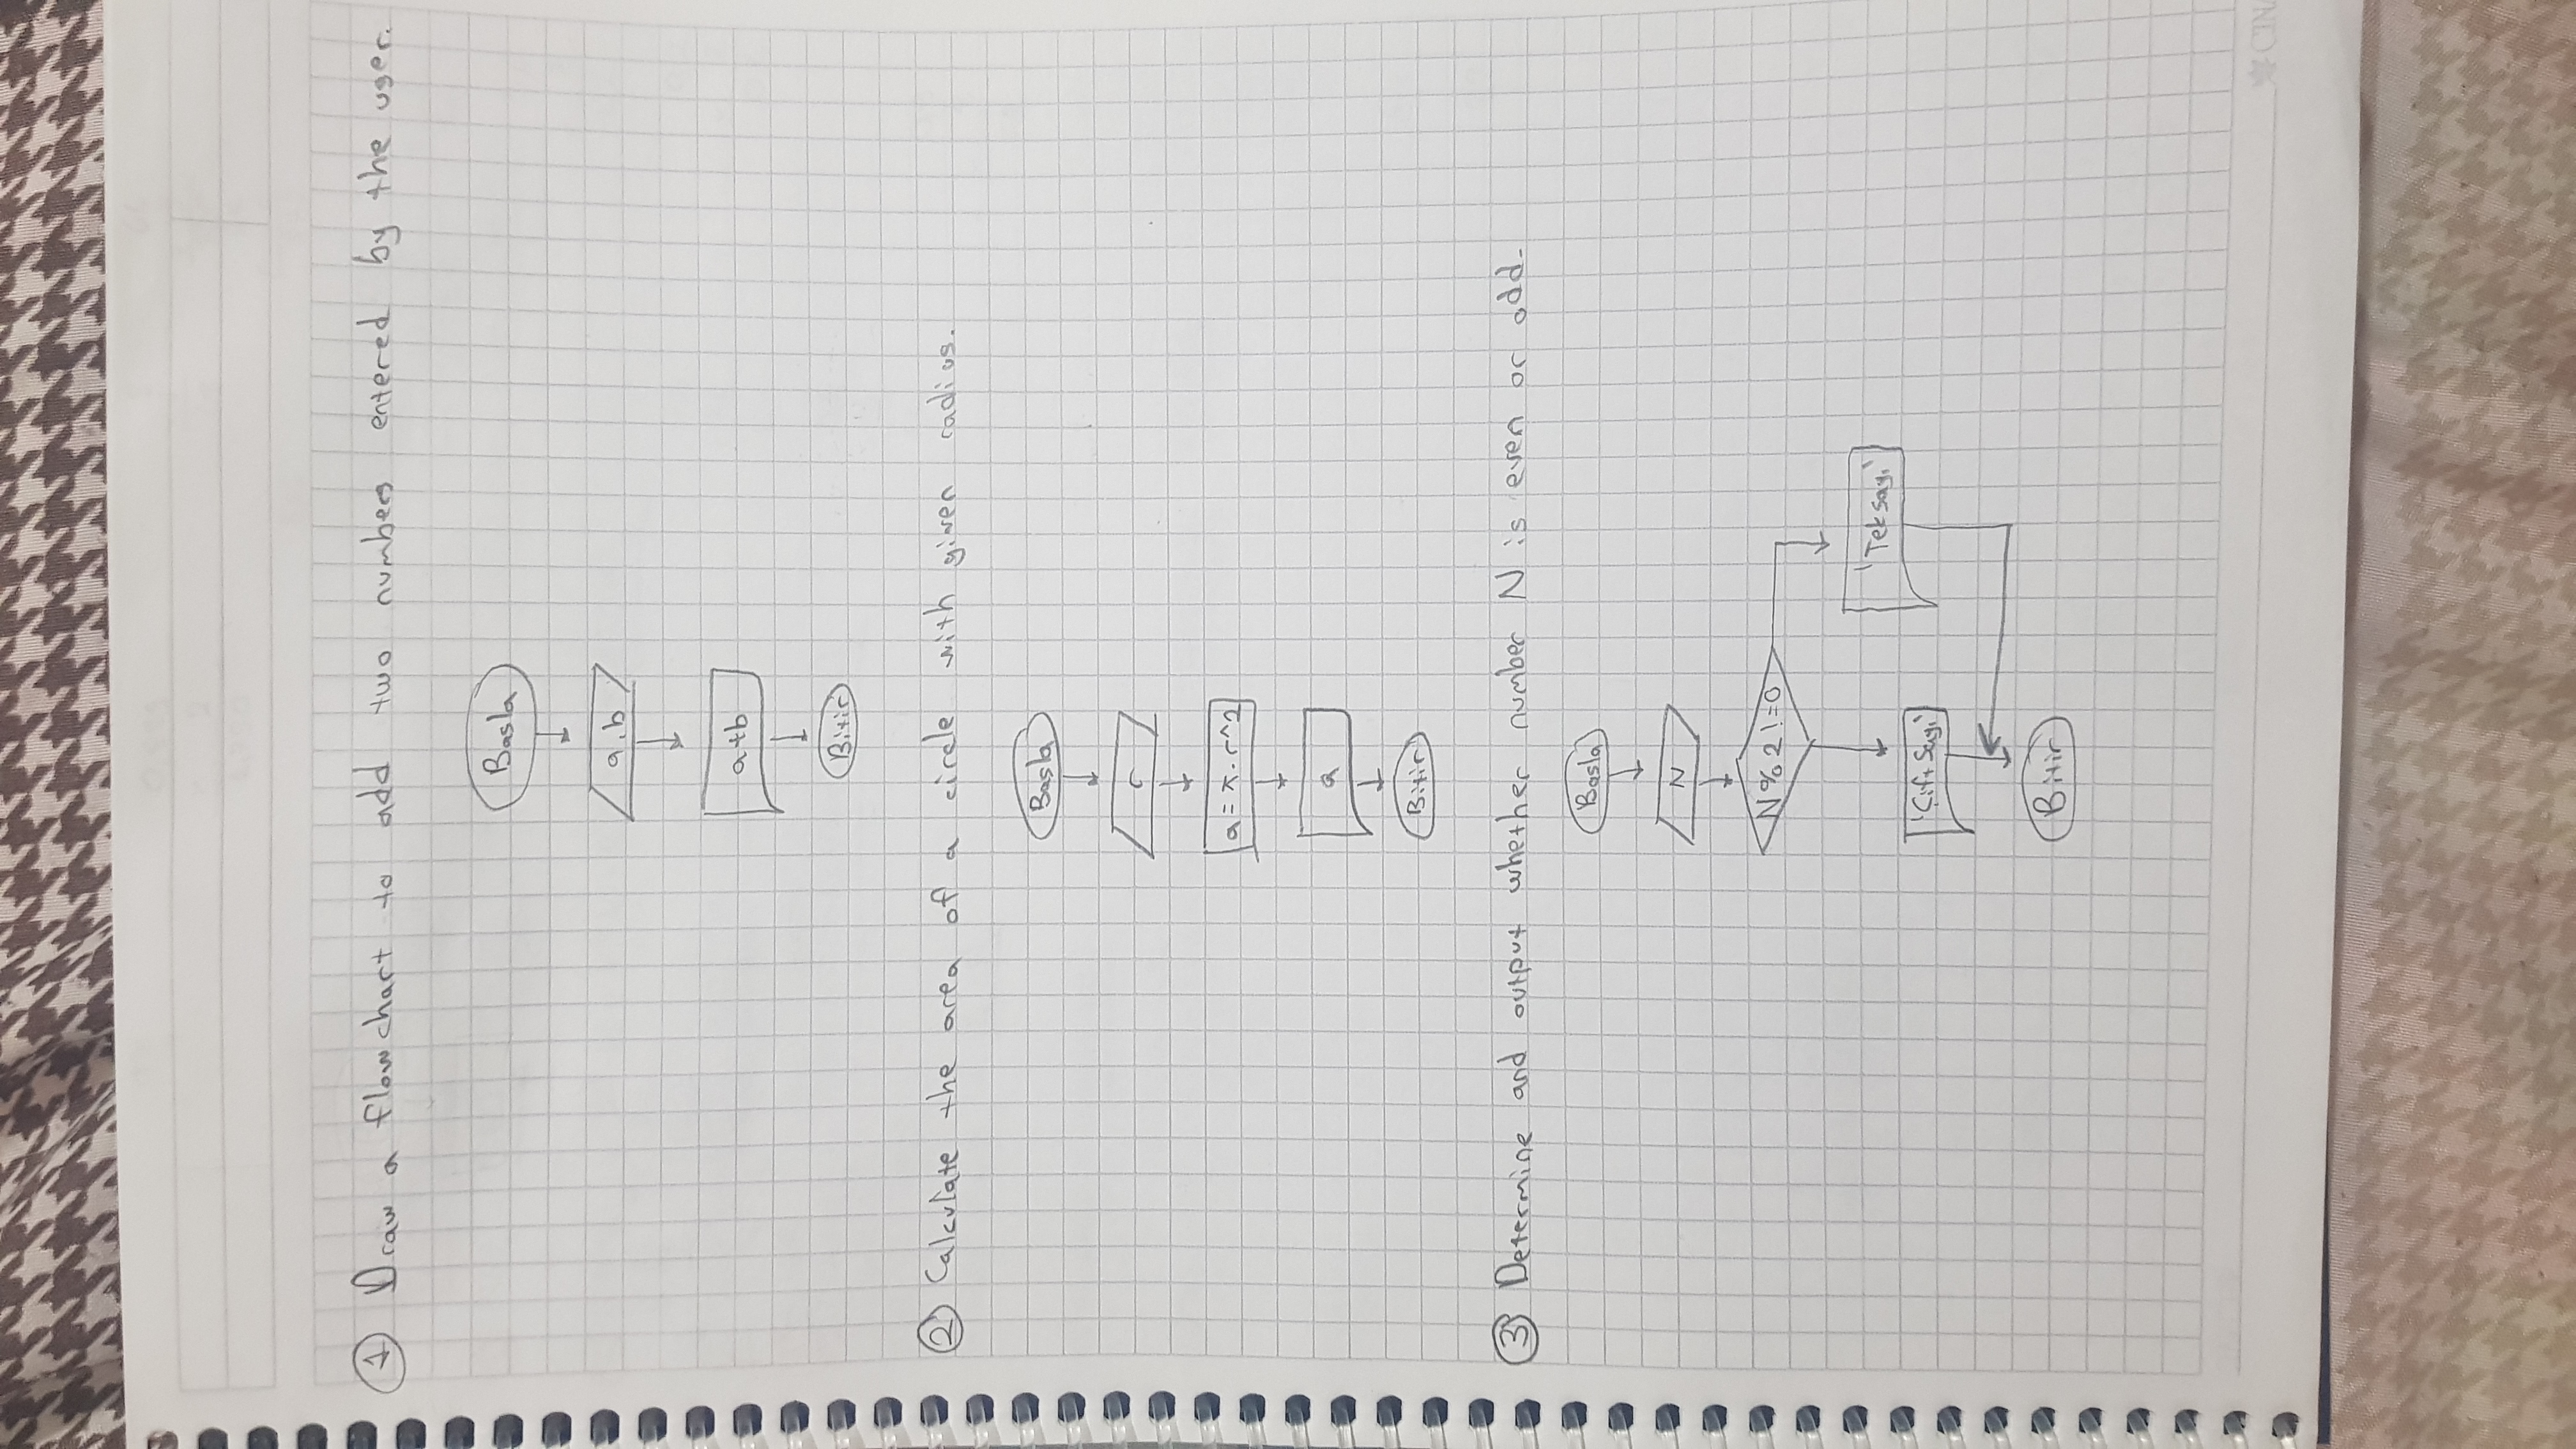 1 Draw a flowchart to add two numbers entered by the user.
Basla
a,b
a+b
Bitir
2 Calculate the area of a circle with given radius.
Basla
r
a = π.r^2
a
Bitir
3 Determine and output whether number N is even or odd.
Basla
N
N%2!=0
'Tek sayı'
'Çift Sayı'
Bitir